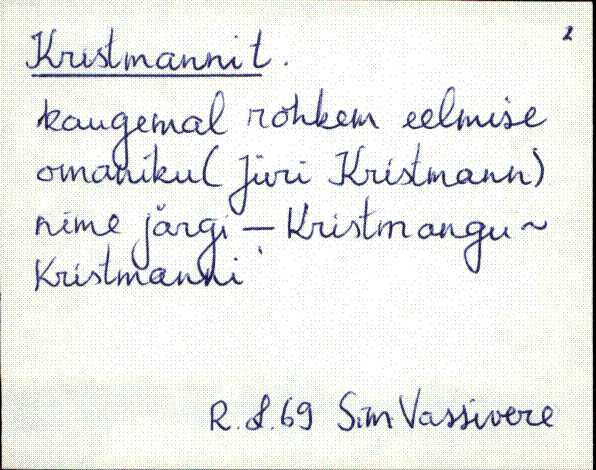 2
Kristmanni t.
kaugemal rohkem eelmise
omaniku (Jüri Kristmann)
nime järgi – Kristmangu ~
Kristmanni
R. S. 69 Sim Vassivere